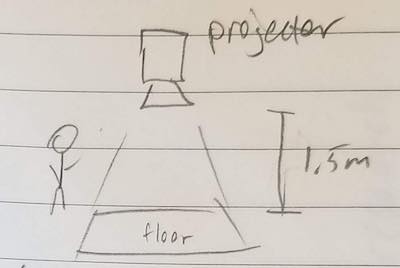 projector
1.5m
floor